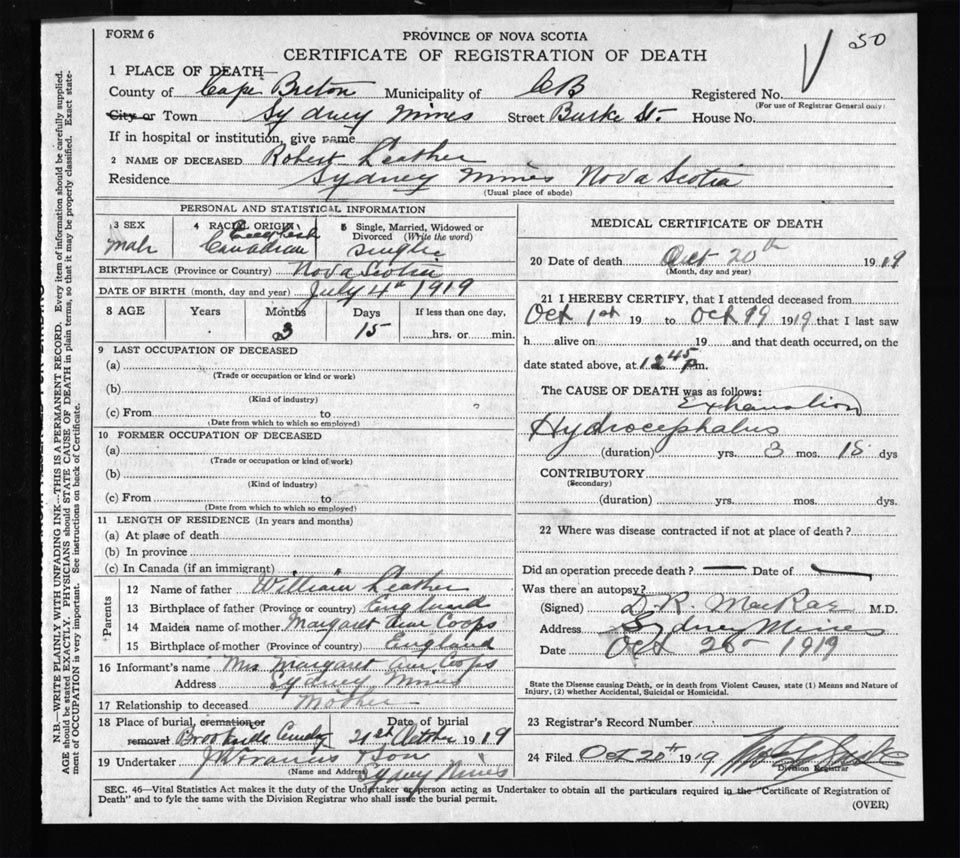 FORM 6
PROVINCE OF NOVA SCOTIA
50
CERTIFICATE OF REGISTRATION OF DEATH
1 PLACE OF DEATH—
County of Cape Breton Municipality of CB Registered No.
(For use of Registrar General only)
City or Town Sydney Mines Street Burke St. House No.
If in hospital or institution, give name
2 NAME OF DECEASED Robert Leather
Residence Sydney Mines Nova Scotia
(Usual place of abode)
PERSONAL AND STATISTICAL INFORMATION
3 SEX 4 RACIAL ORIGIN 5 Single, Married, Widowed or Divorced (Write the word)
Male English Canadian Single
BIRTHPLACE (Province or Country) Nova Scotia
DATE OF BIRTH (month, day and year) July 4th 1919
8 AGE Years Months Days If less than one day,
3 15 hrs. or min.
9 LAST OCCUPATION OF DECEASED
(a)
(Trade or occupation or kind or work)
(b)
(Kind of industry)
(c) From to
(Date from which to which so employed)
10 FORMER OCCUPATION OF DECEASED
(a)
(Trade or occupation or kind of work)
(b)
(Kind of industry)
(c) From to
(Date from which to which so employed)
11 LENGTH OF RESIDENCE (In years and months)
(a) At place of death
(b) In province
(c) In Canada (if an immigrant)
Parents
12 Name of father William Leather
13 Birthplace of father (Province or country) England
14 Maiden name of mother Margaret Ann Coops
15 Birthplace of mother (Province or country) England
16 Informant's name Mrs Margaret Ann Coops
Address Sydney Mines
17 Relationship to deceased Mother
18 Place of burial, cremation or removal Date of burial
Brookside Cemetry 21st October 1919
19 Undertaker Francis & Son
(Name and Address) Sydney Mines
MEDICAL CERTIFICATE OF DEATH
20 Date of death Oct 20th 1919
(Month, day and year)
21 I HEREBY CERTIFY, that I attended deceased from
Oct 1st 19 to Oct 19 1919 that I last saw
h alive on 19 and that death occurred, on the
date stated above, at 12 45 Pm.
The CAUSE OF DEATH was as follows:
Exhaustion
Hydrocephalus
(duration) yrs. 3 mos. 15 dys
CONTRIBUTORY
(Secondary)
(duration) yrs. mos. dys.
22 Where was disease contracted if not at place of death?
Did an operation precede death? — Date of —
Was there an autopsy?
(Signed) D. R. MacRae M.D.
Address Sydney Mines
Date Oct 20 1919
State the Disease causing Death, or in death from Violent Causes, state (1) Means and Nature of
Injury, (2) whether Accidental, Suicidal or Homicidal.
23 Registrar's Record Number
24 Filed Oct 20th 1919
Division Registrar
SEC. 46—Vital Statistics Act makes it the duty of the Undertaker or person acting as Undertaker to obtain all the particulars required in the "Certificate of Registration of
Death" and to fyle the same with the Division Registrar who shall issue the burial permit.
(OVER)
N.B.—WRITE PLAINLY WITH UNFADING INK—THIS IS A PERMANENT RECORD. Every item of information should be carefully supplied.
AGE should be stated EXACTLY. PHYSICIANS should STATE CAUSE OF DEATH in plain terms, so that it may be properly classified. Exact state-
ment of OCCUPATION is very important. See instructions on back of Certificate.